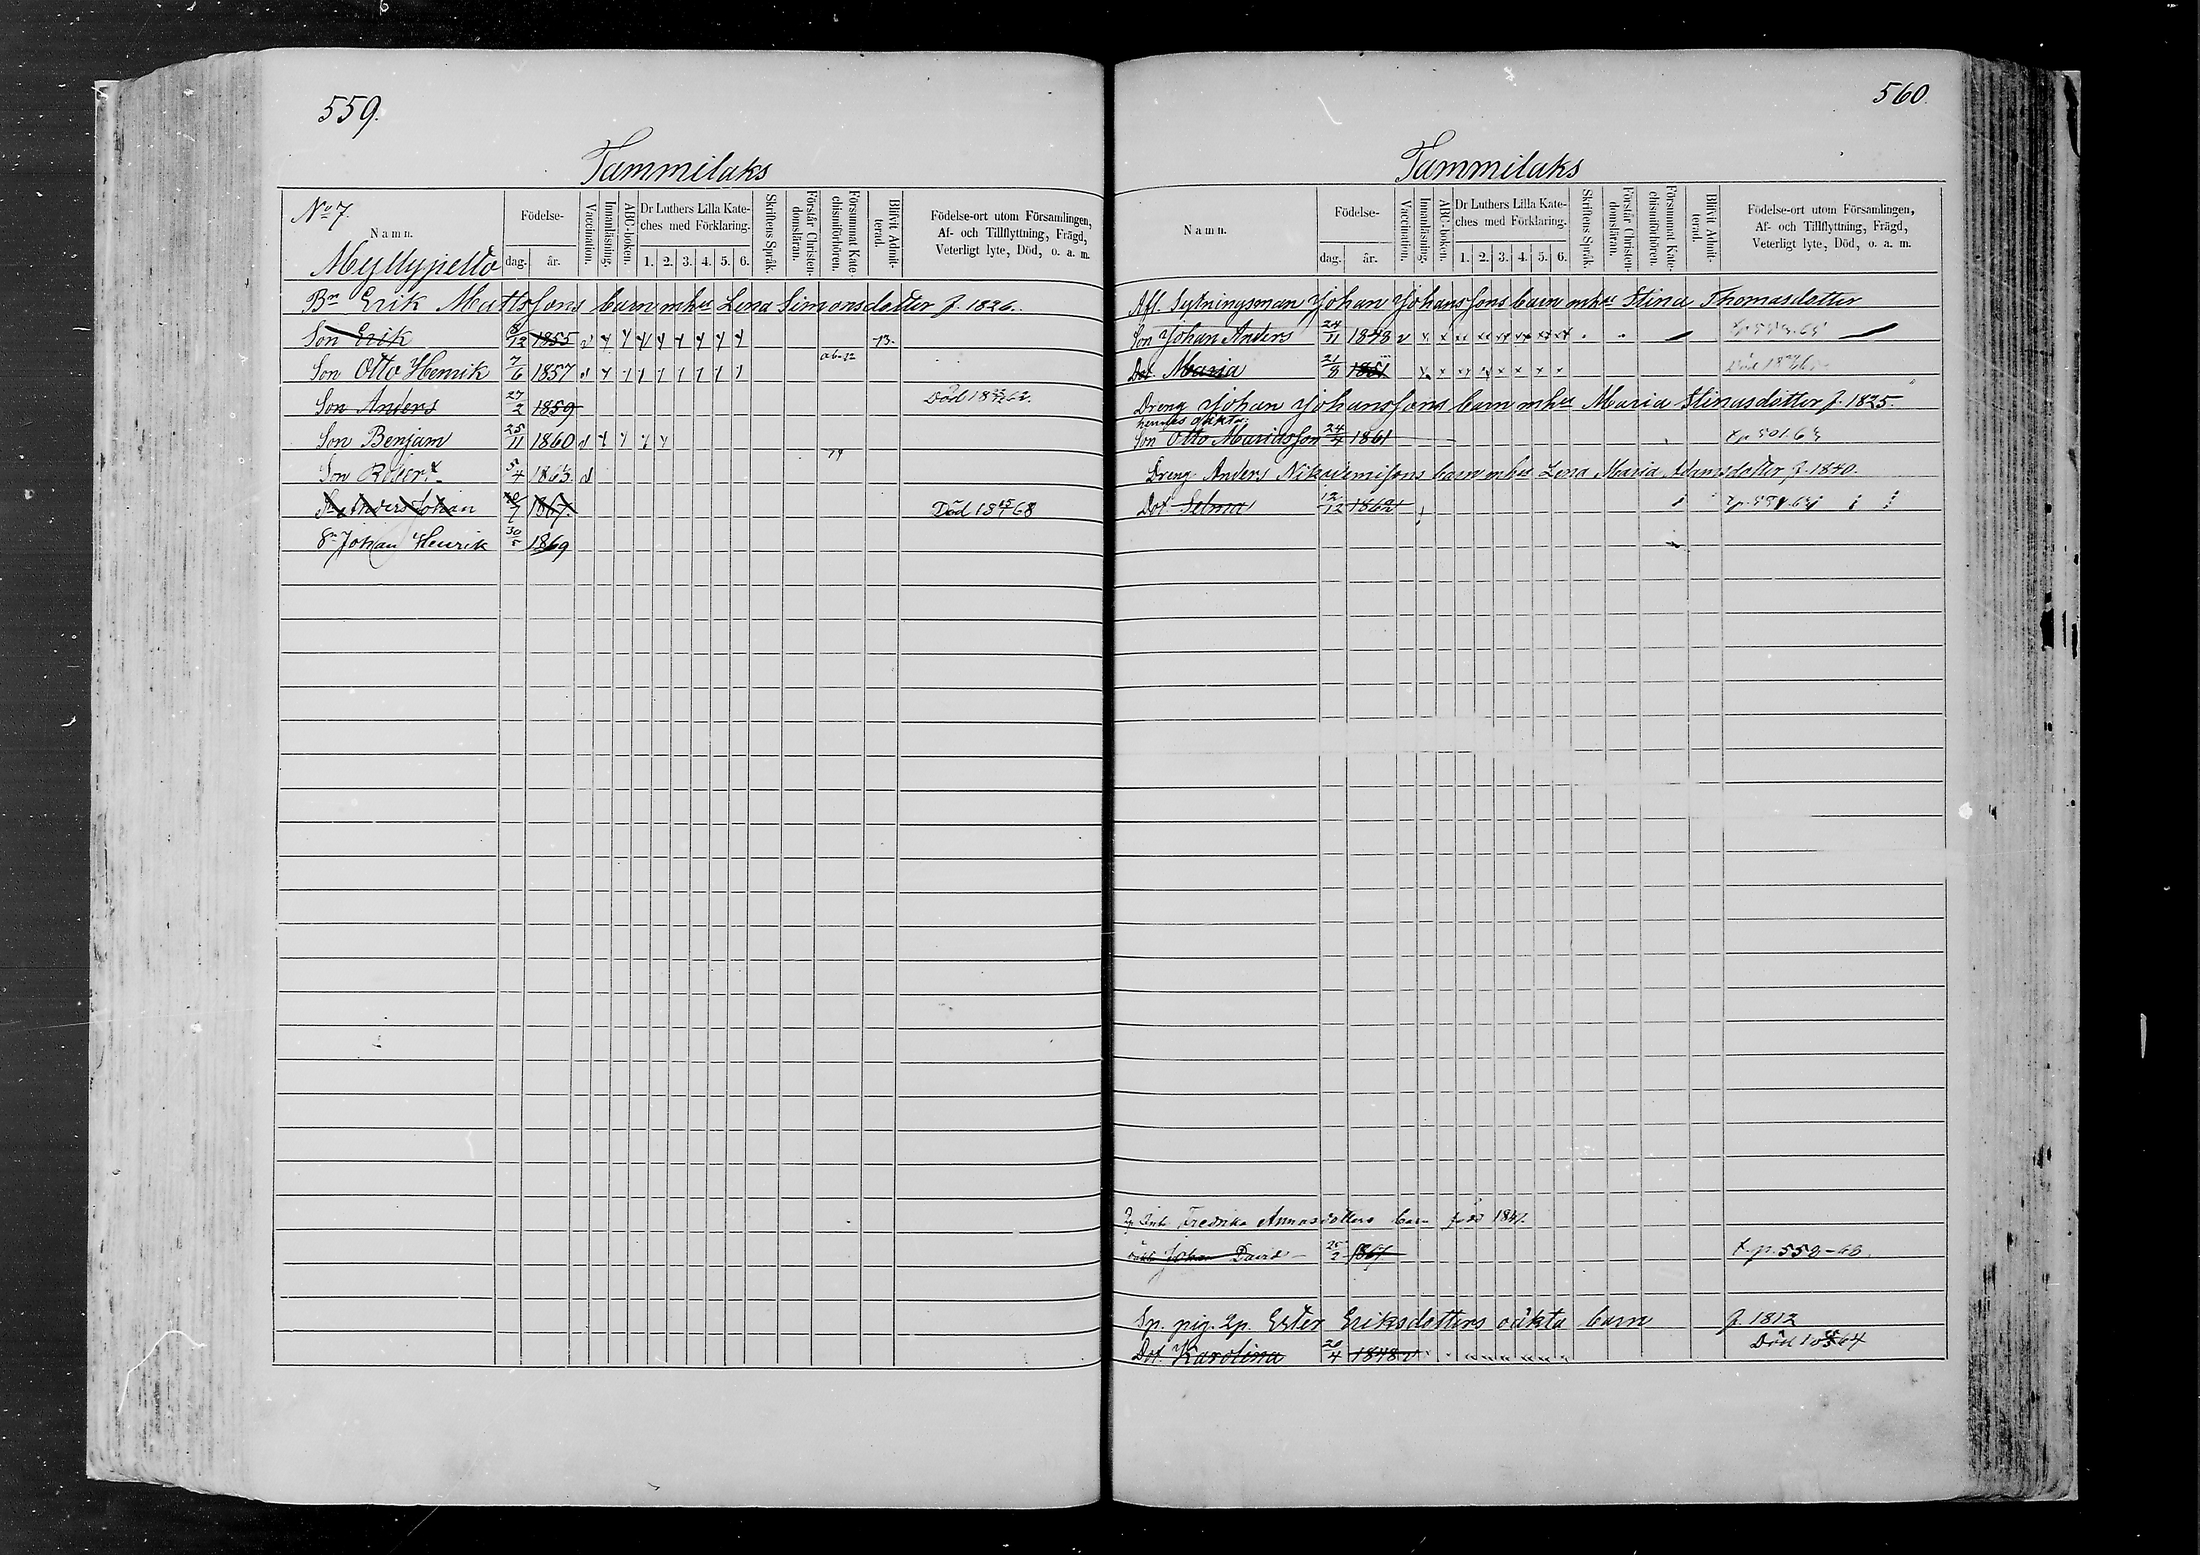 559.
Tammilaks
No 7.
Namn.
Myllypelto
Födelse-
dag. år.
Vaccination.
Innanläsning.
ABC-boken.
Dr Luthers Lilla Kate-
ches med Förklaring.
1. 2. 3. 4. 5. 6.
Skriftens Språk.
Förstår Christen-
domsläran.
Försummat Kate-
chismiförhören.
Blifvit Admit-
terad.
Födelse-ort utom Församlingen,
Af- och Tillflyttning, Frägd,
Veterligt lyte, Död, o. a. m.
Bn Erik Mattssons barn mhu Lena Simonsdotter f. 1826.
Son Erik 8/12 1855 v 73.
Son Otto Henrik 7/6 1857 v
Son Anders 27/2 1859 Död
Son Benjam 25/11 1860 v
Son Robert 5/4 1863 v
Sn Anders Johan 1867. Död
Sn Johan Henrik 30/5 1869
560.
Tammilaks
Namn.
Födelse-
dag. år.
Vaccination.
Innanläsning.
ABC-boken.
Dr Luthers Lilla Kate-
ches med Förklaring.
1. 2. 3. 4. 5. 6.
Skriftens Språk.
Förstår Christen-
domsläran.
Försummat Kate-
chismiförhören.
Blifvit Admit-
terad.
Födelse-ort utom Församlingen,
Af- och Tillflyttning, Frägd,
Veterligt lyte, Död, o. a. m.
Afl. Sytningsman Johan Johanssons barn mhu Stina Thomasdotter
Son Johan Anders 24/11 1843 v
Dot. Maria 21/8 1851
Dreng Johan Johanssons barn mhu Maria Stinasdotter f. 1825.
hennes oäkta
Son Otto Mariasson 24/4 1861 tp 501.63
Dreng Anders Nikodemissons barn mhu Lena Maria Adamsdotter f. 1840.
Dot. Selma 12/12 1862
Fredrika Annasdotters barn född
oäkt Johan David 25/2 1867. t.p. 553-68.
Sp. pig. Ester Eriksdotters oäkta barn f. 1812
Dot. Karolina 20/4 1848 v Död